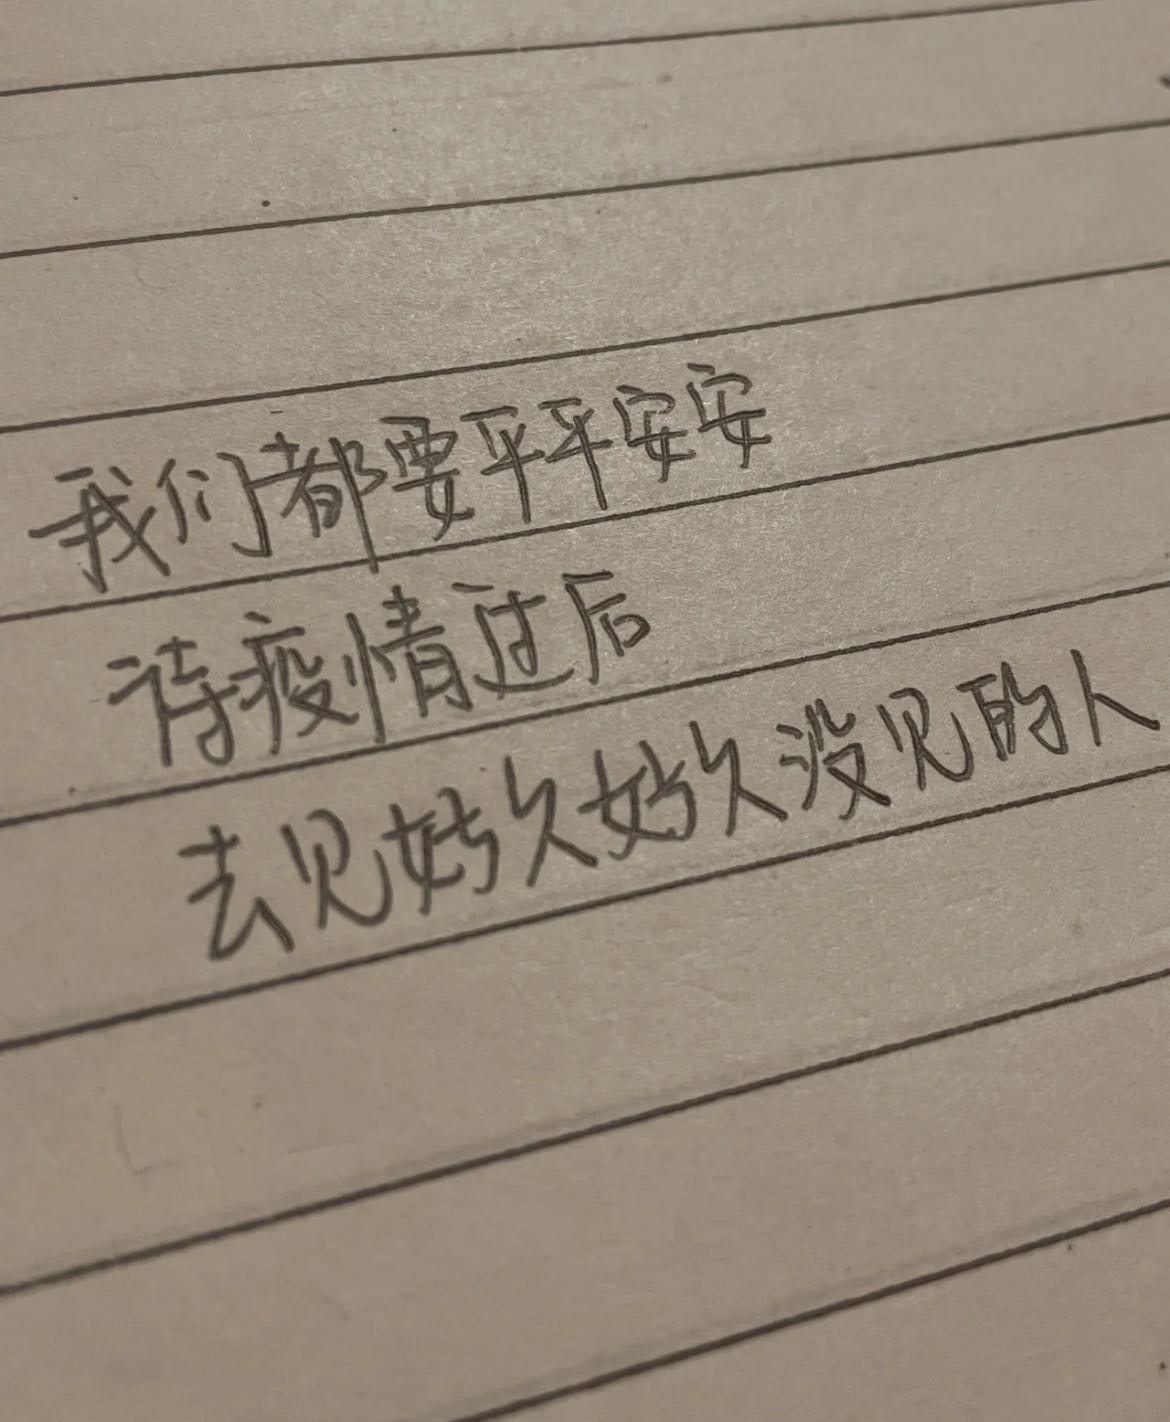 我们都要平平安安
待疫情过后
去见好久好久没见的人